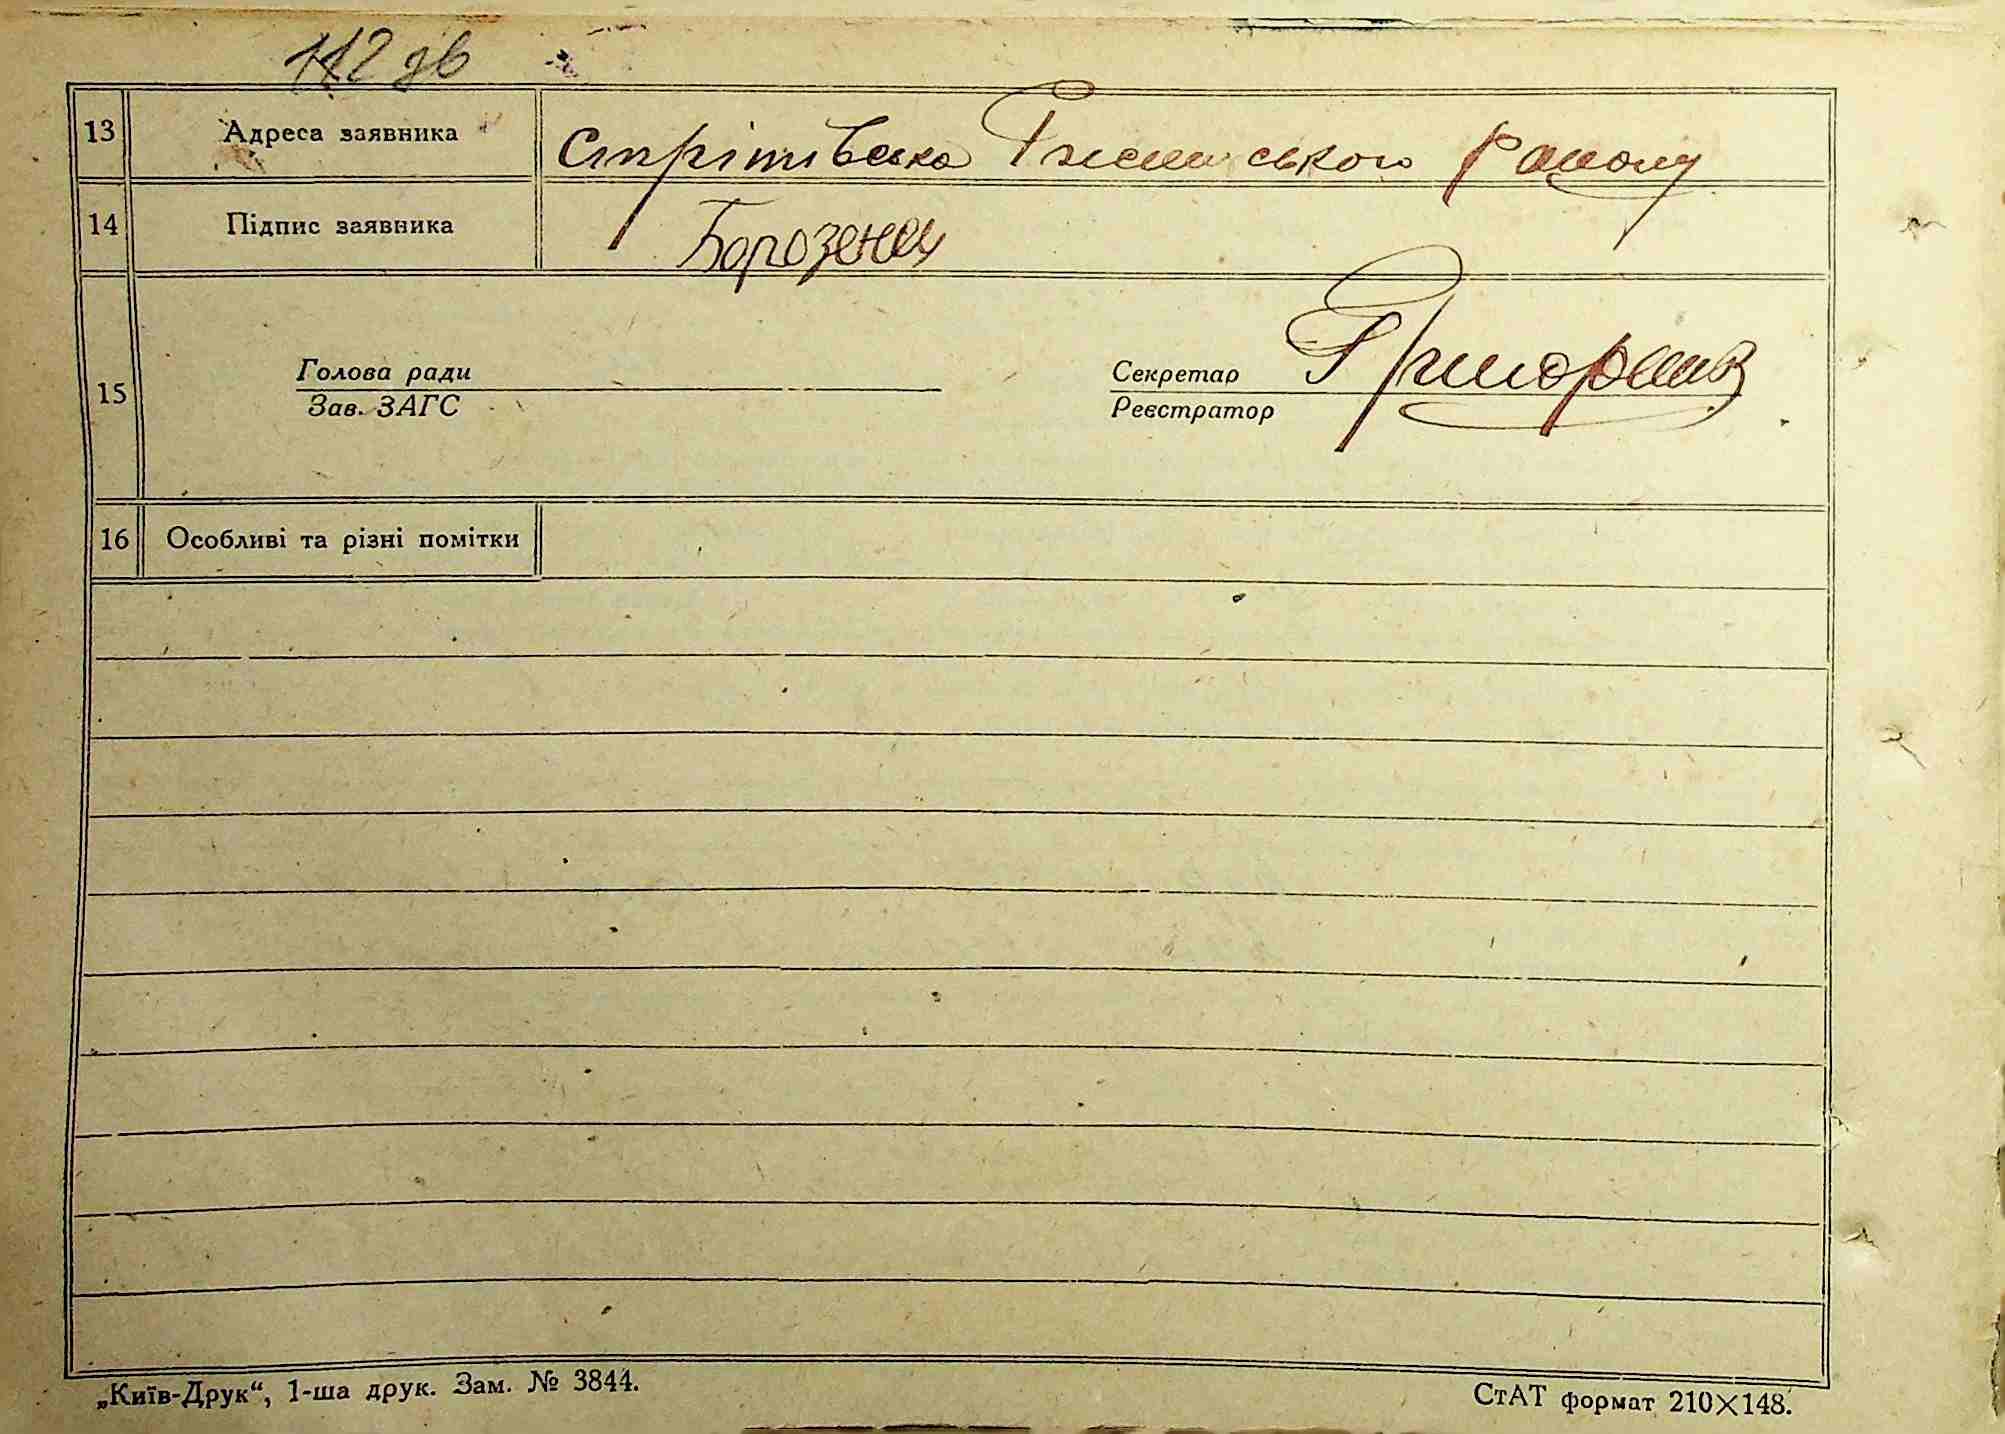 112 зв
13 Адреса заявника Стрітівська Ржищевського району
14 Підпис заявника Борозенец
15 Голова ради Секретар
Зав. ЗАГС Реєстратор
16 Особливі та різні помітки
„Київ-Друк“, 1-ша друк. Зам. № 3844. СтАТ формат 210×148.